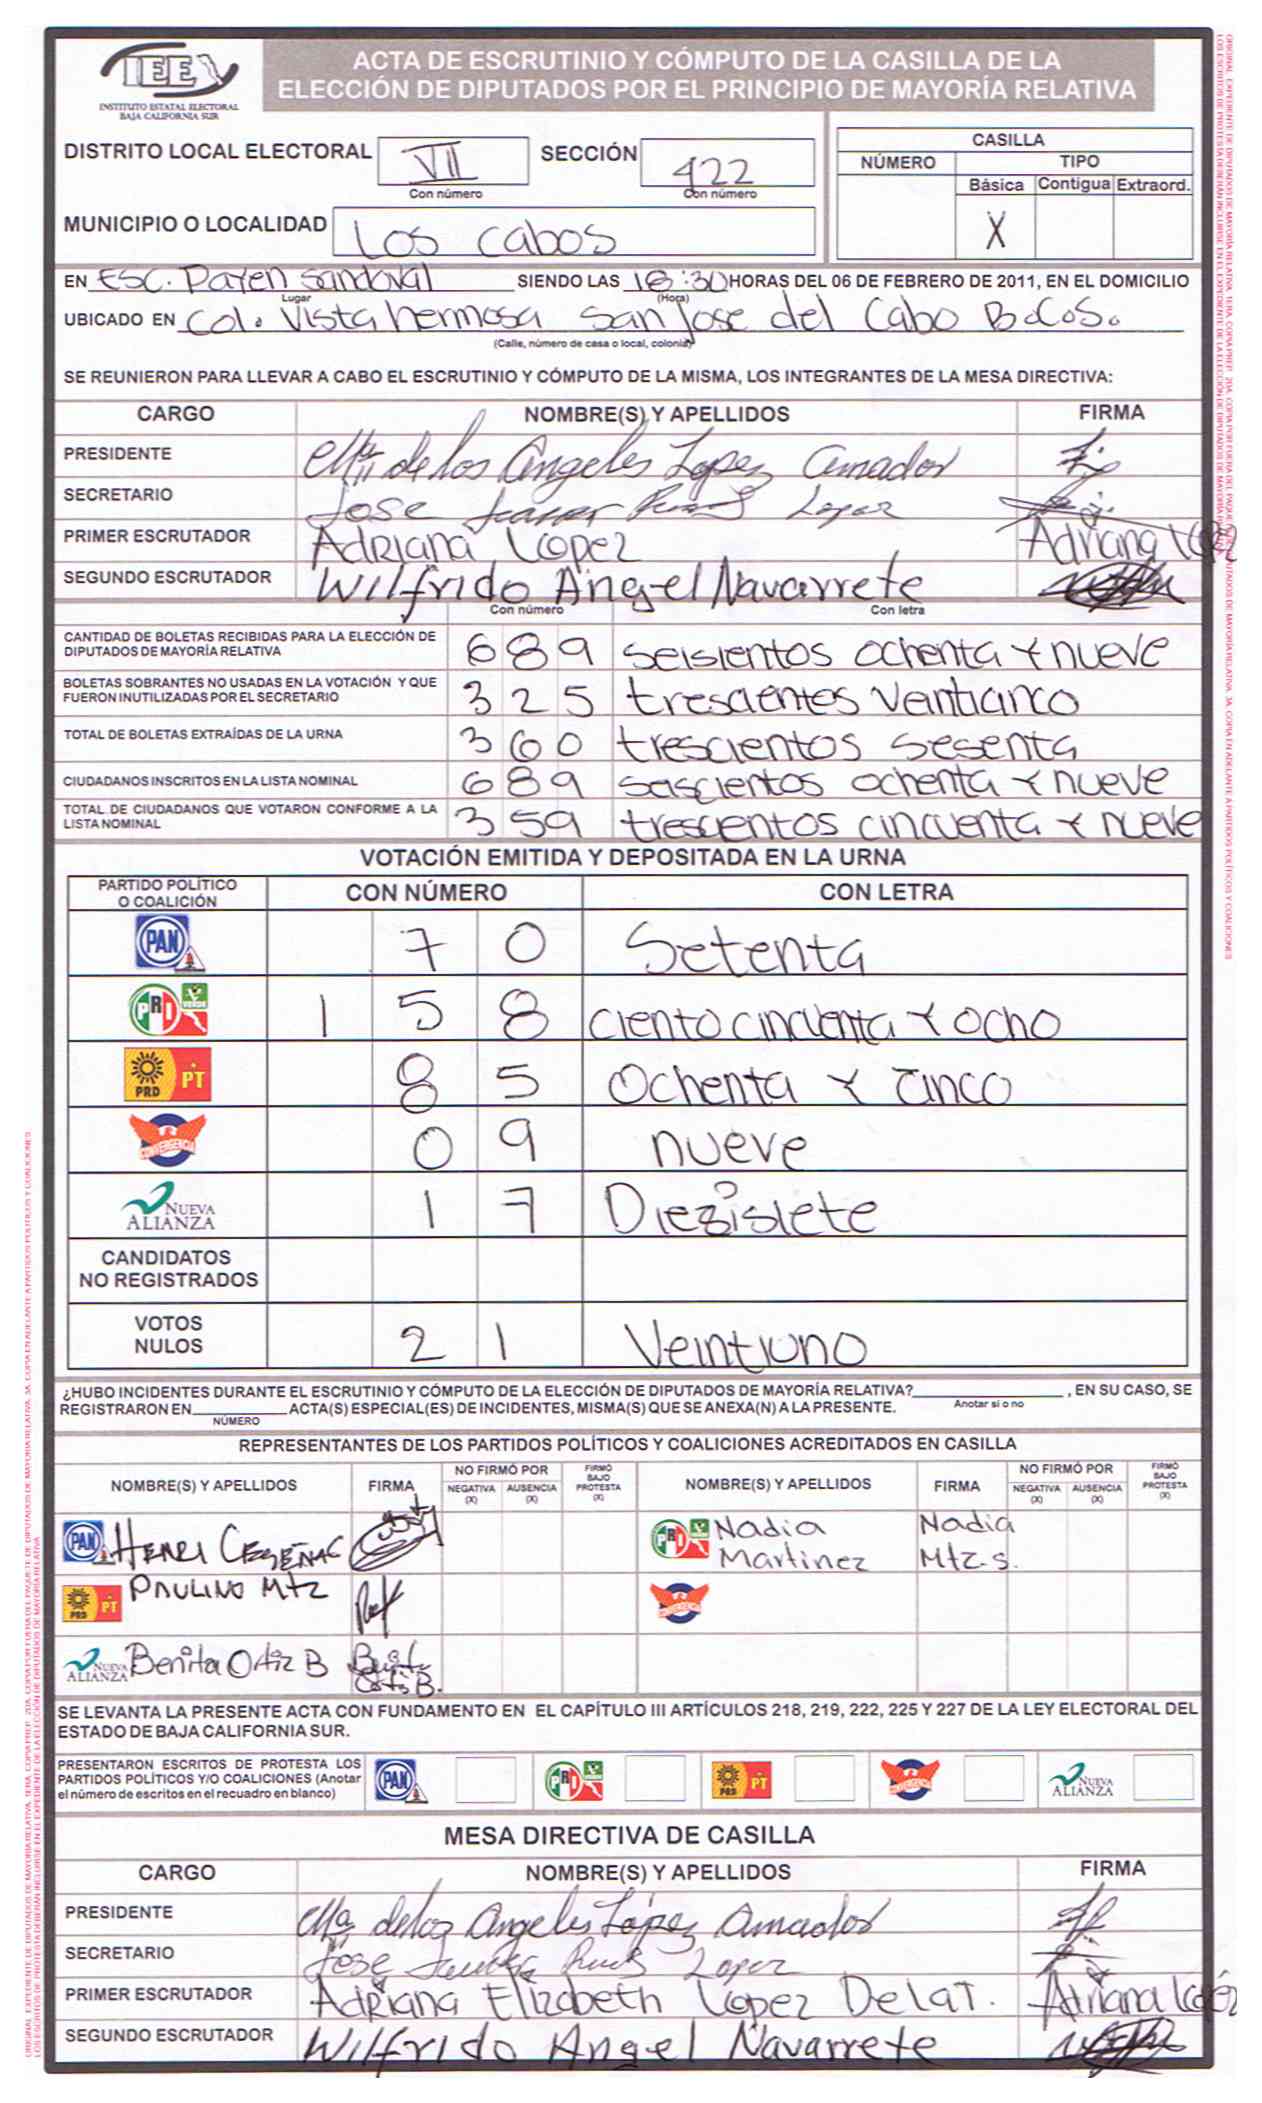 IEEX
INSTITUTO ESTATAL ELECTORAL
BAJA CALIFORNIA SUR
ACTA DE ESCRUTINIO Y CÓMPUTO DE LA CASILLA DE LA
ELECCIÓN DE DIPUTADOS POR EL PRINCIPIO DE MAYORÍA RELATIVA
DISTRITO LOCAL ELECTORAL VII SECCIÓN 422
Con número Con número
CASILLA
NÚMERO TIPO
Básica Contigua Extraord.
X
MUNICIPIO O LOCALIDAD Los Cabos
EN Esc. Payen Sandoval SIENDO LAS 18:30 HORAS DEL 06 DE FEBRERO DE 2011, EN EL DOMICILIO
Lugar (Hora)
UBICADO EN Col. Vista hermosa San Jose del Cabo B.C.S.
(Calle, número de casa o local, colonia)
SE REUNIERON PARA LLEVAR A CABO EL ESCRUTINIO Y CÓMPUTO DE LA MISMA, LOS INTEGRANTES DE LA MESA DIRECTIVA:
CARGO NOMBRE(S) Y APELLIDOS FIRMA
PRESIDENTE Ma. de los Angeles Lopez Amador
SECRETARIO Jose Lopez
PRIMER ESCRUTADOR Adriana López Adriana López
SEGUNDO ESCRUTADOR Wilfrido Angel Navarrete
Con número Con letra
CANTIDAD DE BOLETAS RECIBIDAS PARA LA ELECCIÓN DE
DIPUTADOS DE MAYORÍA RELATIVA 689 seisientos ochenta y nueve
BOLETAS SOBRANTES NO USADAS EN LA VOTACIÓN Y QUE
FUERON INUTILIZADAS POR EL SECRETARIO 325 trescientes veintiarco
TOTAL DE BOLETAS EXTRAÍDAS DE LA URNA 360 trescientos sesenta
CIUDADANOS INSCRITOS EN LA LISTA NOMINAL 689 seiscientos ochenta y nueve
TOTAL DE CIUDADANOS QUE VOTARON CONFORME A LA
LISTA NOMINAL 359 trescientos cincuenta y nueve
VOTACIÓN EMITIDA Y DEPOSITADA EN LA URNA
PARTIDO POLÍTICO
O COALICIÓN CON NÚMERO CON LETRA
PAN 7 0 Setenta
PRI VERDE 1 5 8 ciento cincuenta y ocho
PRD PT 8 5 Ochenta y cinco
CONVERGENCIA 0 9 nueve
NUEVA ALIANZA 1 7 Diezisiete
CANDIDATOS
NO REGISTRADOS
VOTOS
NULOS 2 1 Veintiuno
¿HUBO INCIDENTES DURANTE EL ESCRUTINIO Y CÓMPUTO DE LA ELECCIÓN DE DIPUTADOS DE MAYORÍA RELATIVA? , EN SU CASO, SE
Anotar si o no
REGISTRARON EN ACTA(S) ESPECIAL(ES) DE INCIDENTES, MISMA(S) QUE SE ANEXA(N) A LA PRESENTE.
NÚMERO
REPRESENTANTES DE LOS PARTIDOS POLÍTICOS Y COALICIONES ACREDITADOS EN CASILLA
NOMBRE(S) Y APELLIDOS FIRMA NO FIRMÓ POR NEGATIVA (X) AUSENCIA (X) FIRMÓ BAJO PROTESTA (X) NOMBRE(S) Y APELLIDOS FIRMA NO FIRMÓ POR NEGATIVA (X) AUSENCIA (X) FIRMÓ BAJO PROTESTA (X)
PAN Henri Ceseñas
PRI Nadia Martinez Nadia Mtz.s.
PRD PT Paulino Mtz
CONVERGENCIA
NUEVA ALIANZA Benita Ortiz B Benita Ortiz B.
SE LEVANTA LA PRESENTE ACTA CON FUNDAMENTO EN EL CAPÍTULO III ARTÍCULOS 218, 219, 222, 225 Y 227 DE LA LEY ELECTORAL DEL
ESTADO DE BAJA CALIFORNIA SUR.
PRESENTARON ESCRITOS DE PROTESTA LOS
PARTIDOS POLÍTICOS Y/O COALICIONES (Anotar
el número de escritos en el recuadro en blanco)
PAN PRI PRD PT CONVERGENCIA NUEVA ALIANZA
MESA DIRECTIVA DE CASILLA
CARGO NOMBRE(S) Y APELLIDOS FIRMA
PRESIDENTE Ma. de los Angeles López Amador
SECRETARIO Jose Lopez
PRIMER ESCRUTADOR Adriana Elizabeth López De la T. Adriana López
SEGUNDO ESCRUTADOR Wilfrido Angel Navarrete